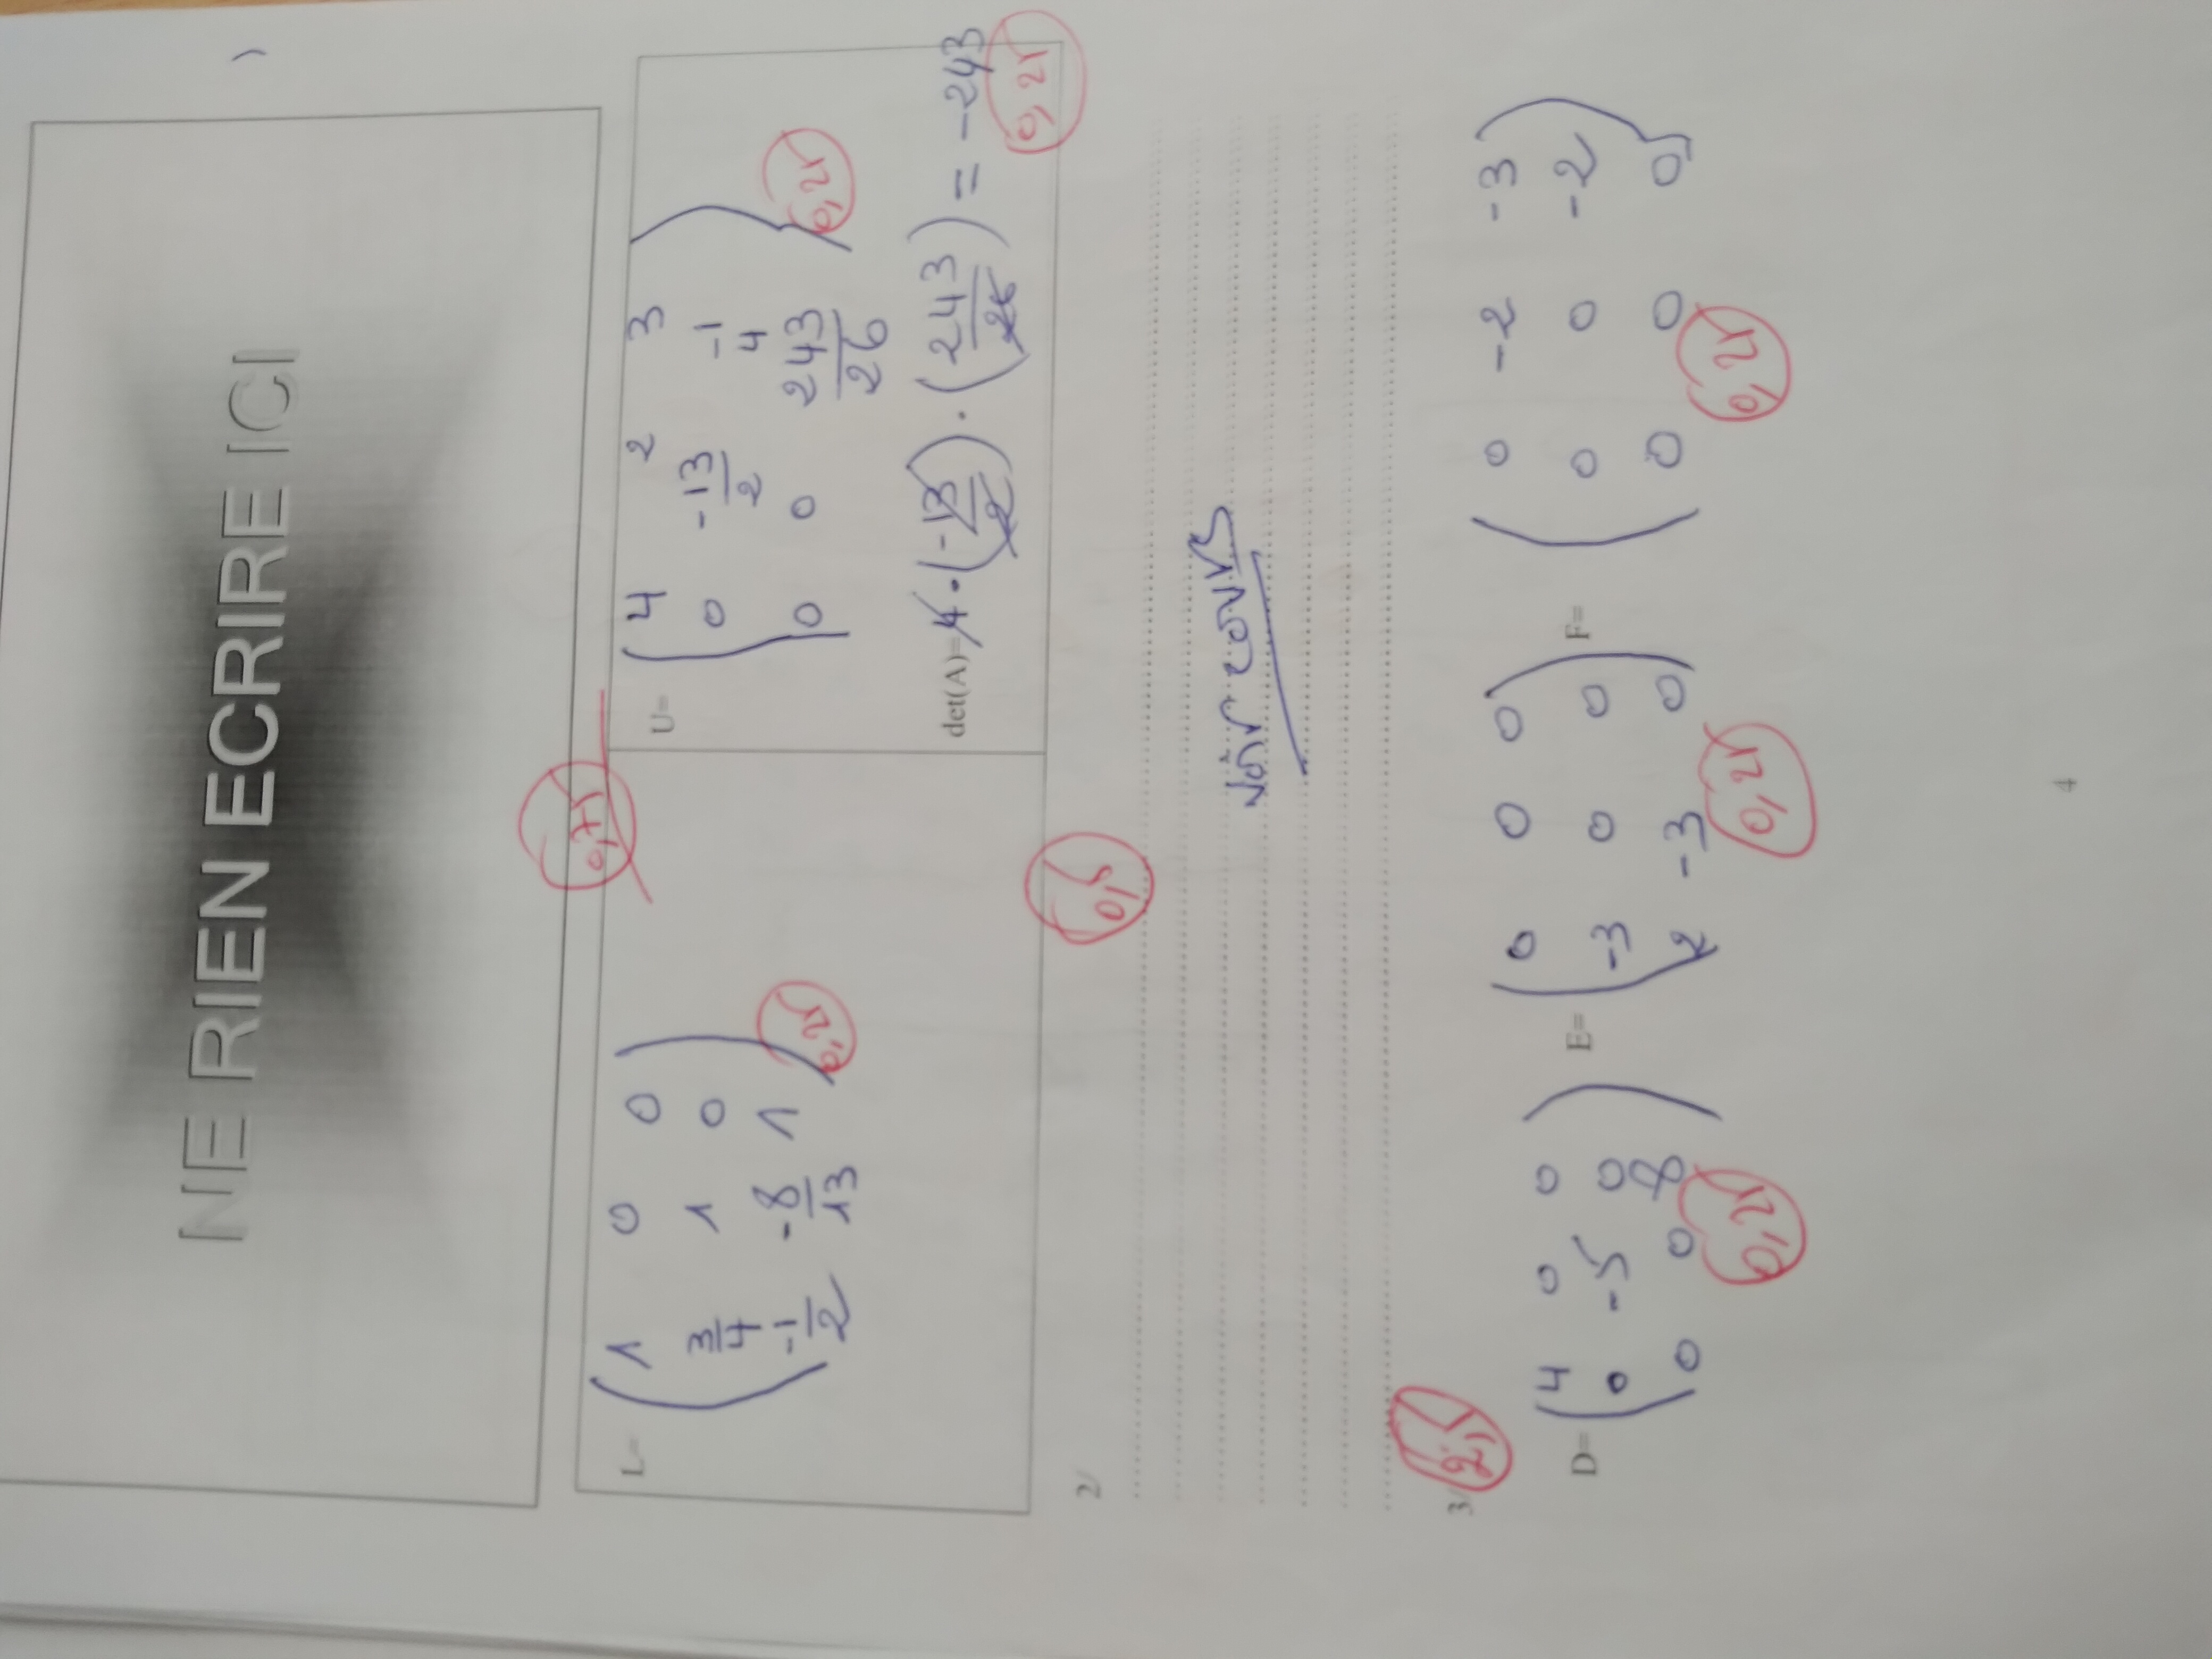 NE RIEN ECRIRE ICI
0,75
L= ( 1 0 0
3/4 1 0
-1/2 -8/13 1 ) 0,25
U= ( 4 2 3
0 -13/2 -1/4
0 0 243/26 ) 0,25
det(A)= 4 · (-13/2) · (243/26) = -243
0,25
2/
0,5
voir cours
3/ 2,5
D= ( 4 0 0
0 -5 0
0 0 8 )
0,25
E= ( 0 0 0
-3 0 0
2 -3 0 )
0,25
F= ( 0 -2 -3
0 0 -2
0 0 0 )
0,25
4